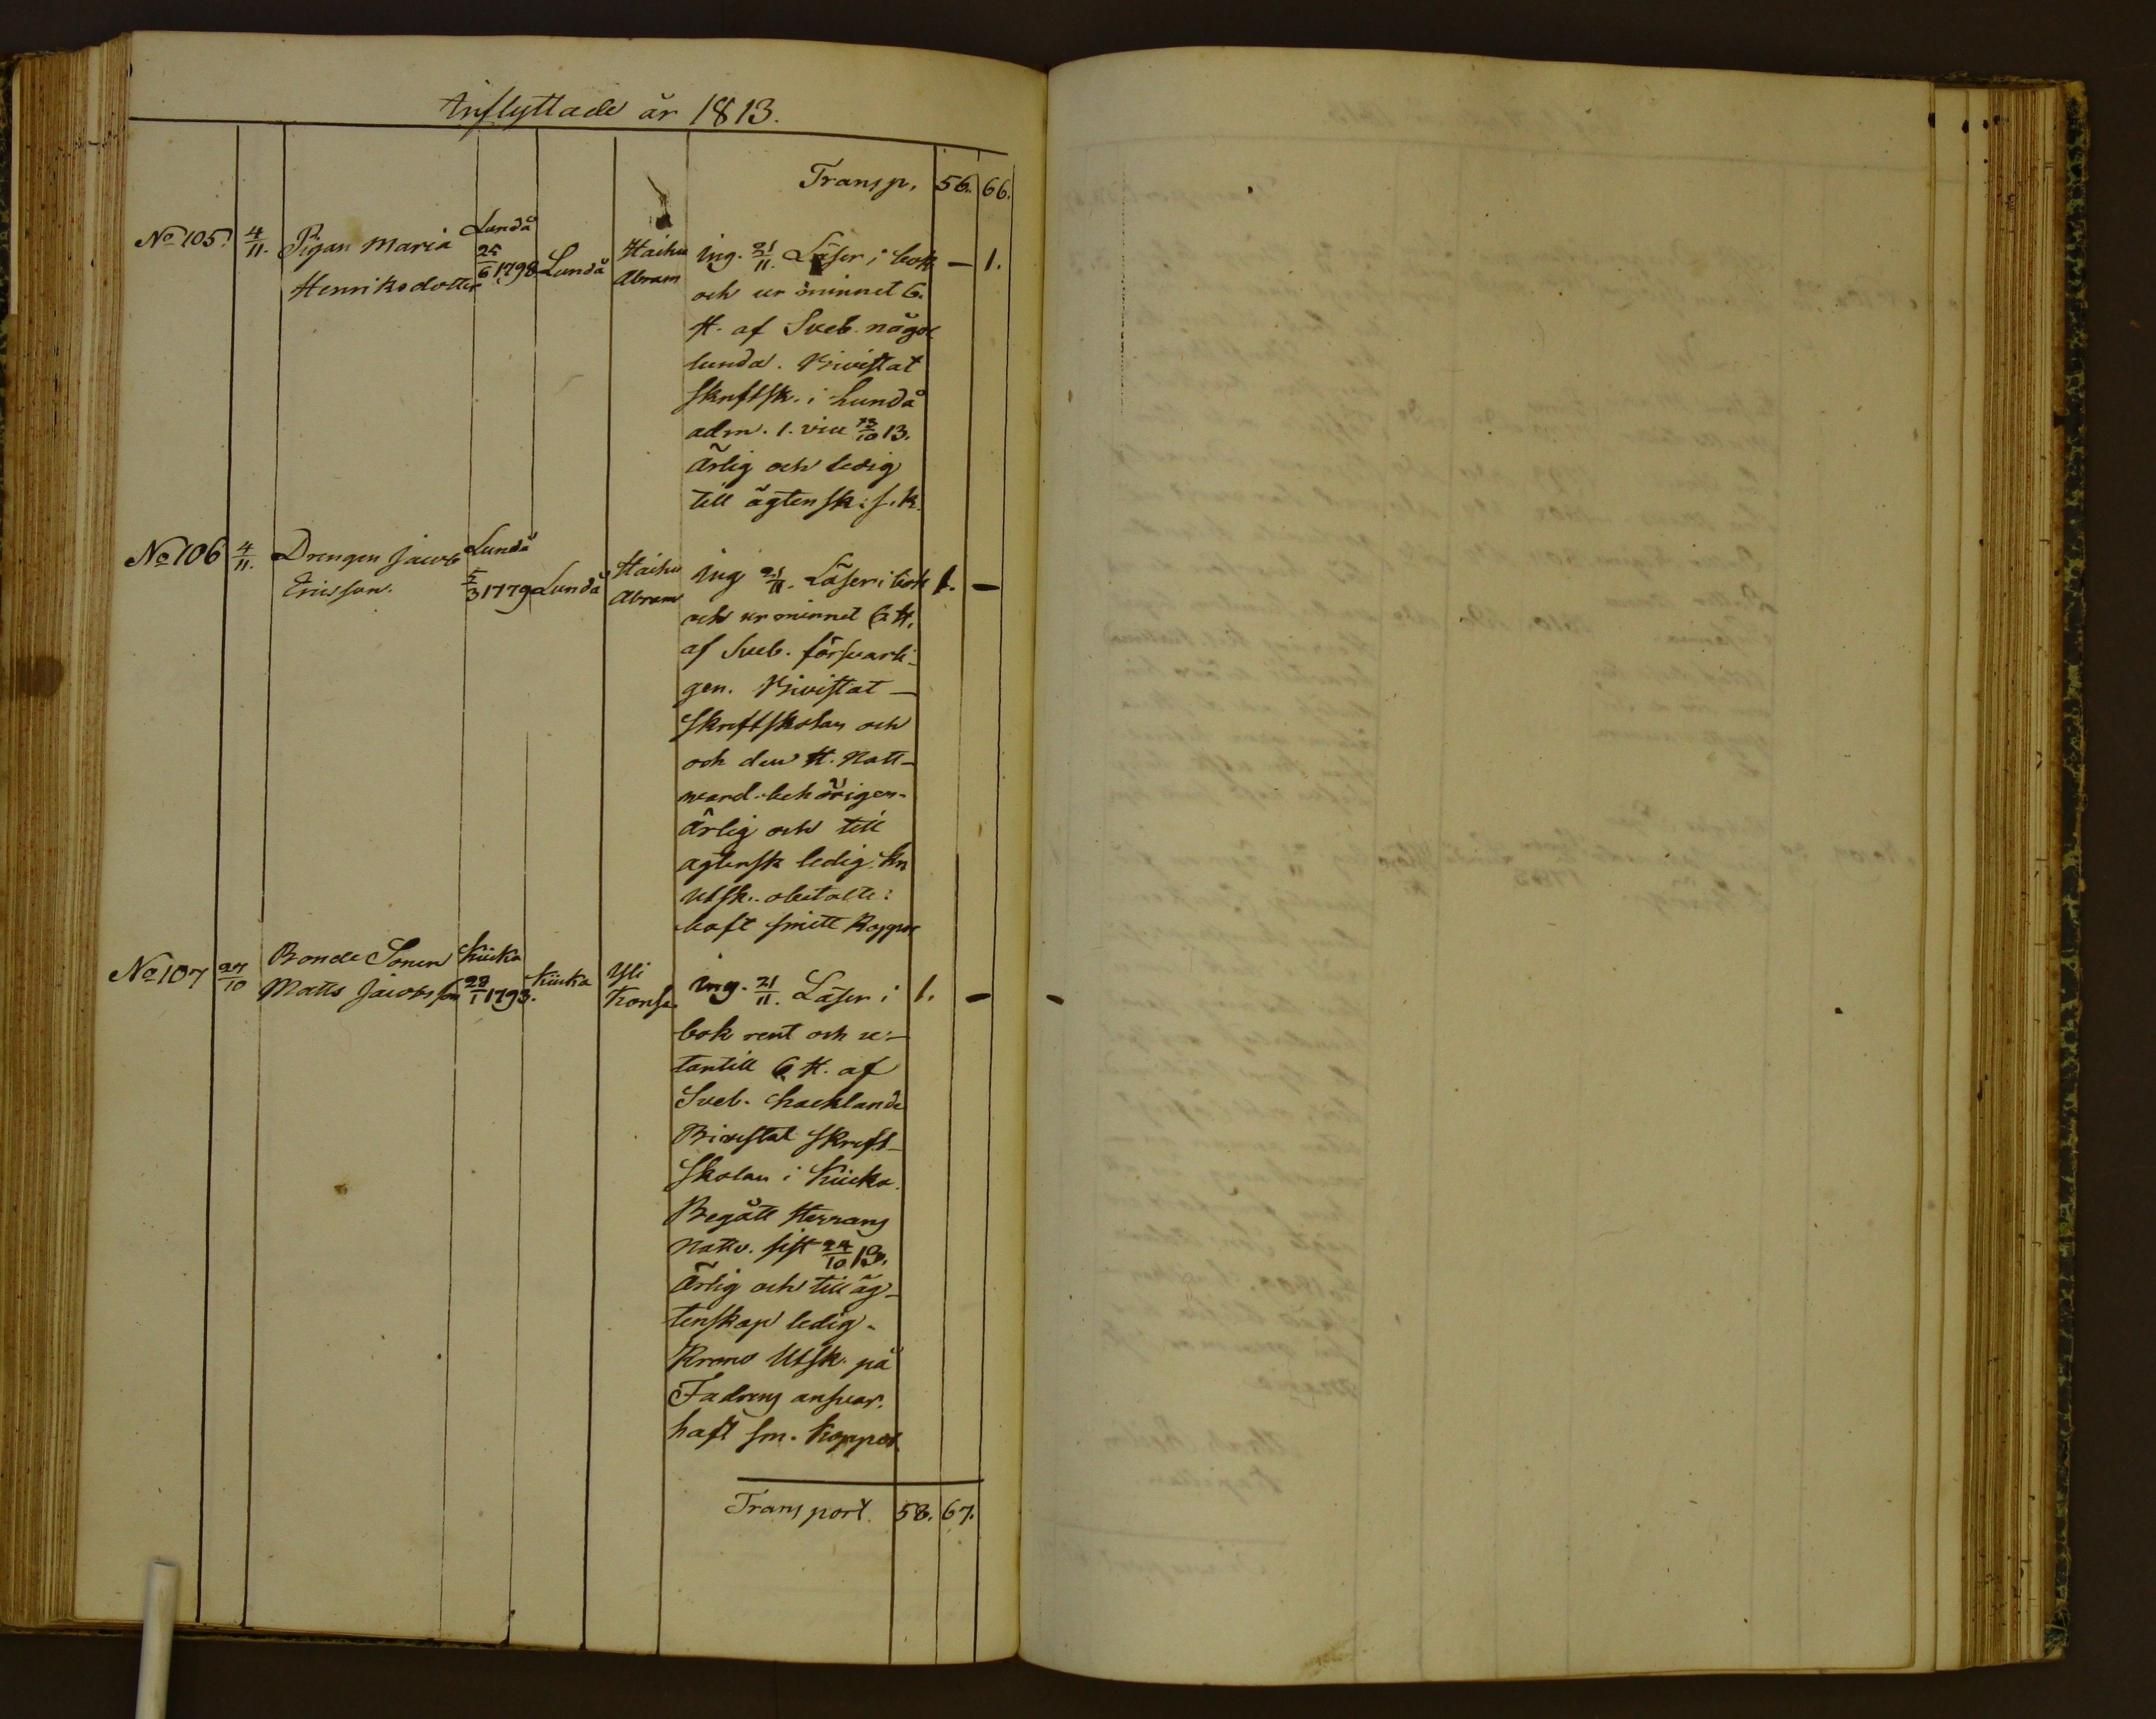 Inflyttade år 1813.
Transp. 56. 66.
No 105. 4/11. Pigan Maria Henriksdotter Lundå 25/6 1798 Lundå Haihu Abram ing. 21/11. Läser i bok — 1.
och ur minnet 6.
H. af Sveb. någor
lunda. Bivistat
skriftsk. i Lundå
adm. 1. vice 13/10 13.
Ärlig och ledig
till ägtensk: f. k.
No 106 4/11. Drengen Jacob Ericsson. Lundå 5/3 1779 Lundå Haihu Abram ing 21/11. Läser i bok 1. —
och ur minnet 6 H.
af Sveb. försvarli-
gen. Bivistat —
skriftskolan och
och den H. Natt-
ward. behörigen.
Ärlig och till
agtensk ledig. Kr.
Utsk. obetalte:
haft smitt koppor
No 107 27/10 Bonde Sonen Matts Jacobsson Kiuka 28/1 1793. Kiuka Yli Konsa. ing. 21/11. Läser i 1. —
bok rent och u-
tantill 6 H. af
Sveb. hacklande
Bivistat skrift-
skolan i Kiuka.
Begått Herrans
Nattv. sist 24/10 13.
Ärlig och till äg-
tenskap ledig.
Krono Utsk. på
Fadrens ansvar.
haft sm. koppor.
Transport. 58. 67.